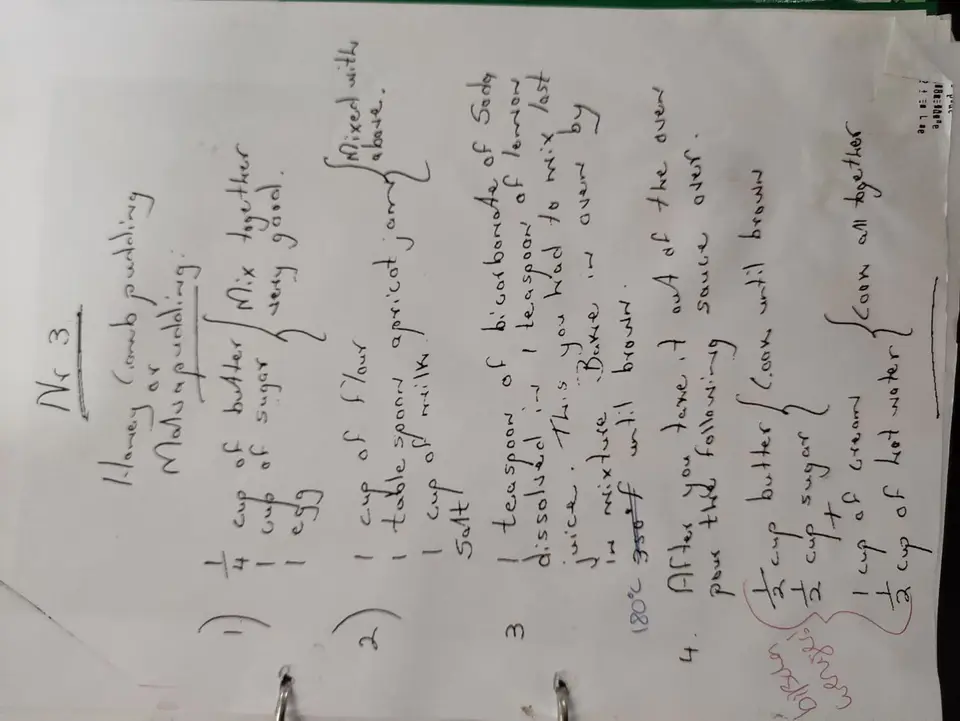 Nr 3
Honey Comb pudding
or
Malvapudding.
1) 1/4 cup of butter { Mix together
1 cup of sugar { very good.
1 egg
2) 1 cup of flour
1 table spoon apricot jam { Mixed with
1 cup of milk { above.
Salt
3 1 teaspoon of bicarbonate of Soda
dissolved in 1 teaspoon of lemon
juice. This you had to mix last
in mixture. Bake in oven by
180°C 350°F until brown.
4. After you take it out of the oven
pour the following sauce over.
1/2 cup butter { Cook until brown
1/2 cup sugar
+
1 cup of cream { Cook all together
1/2 cup of hot water